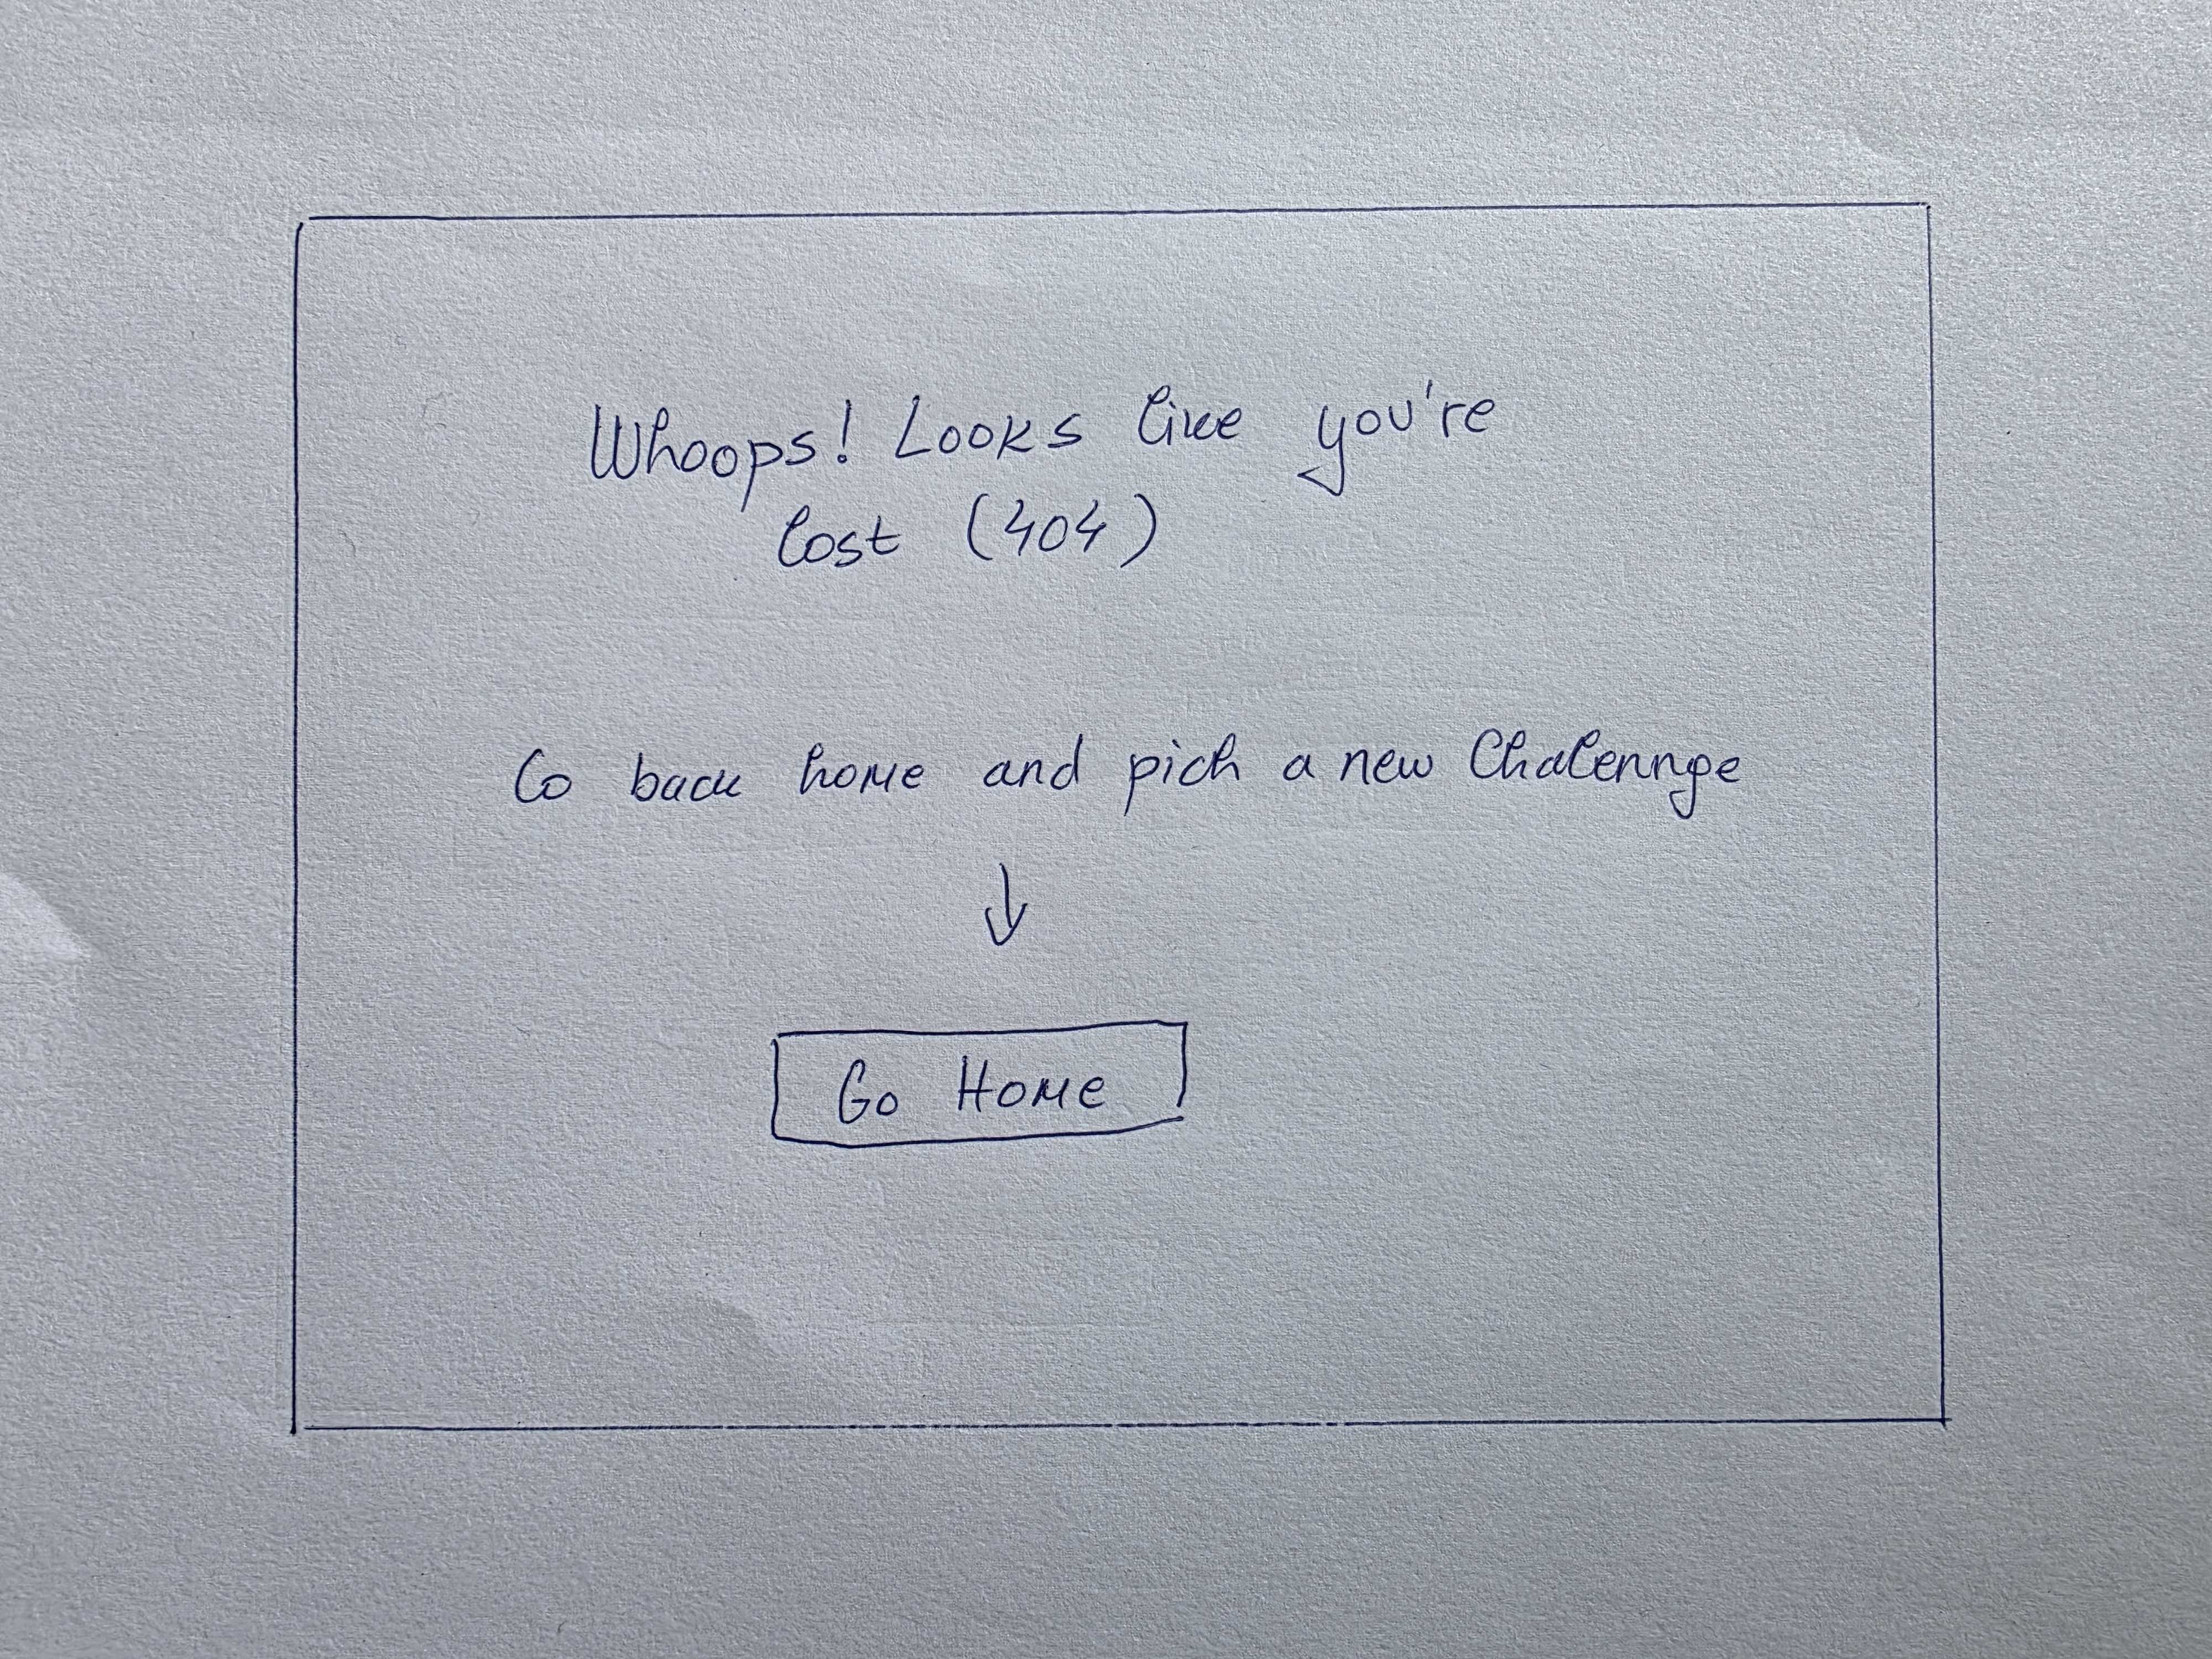 Whoops! Looks like you're
lost (404)
Go back home and pick a new Chalennge
Go Home